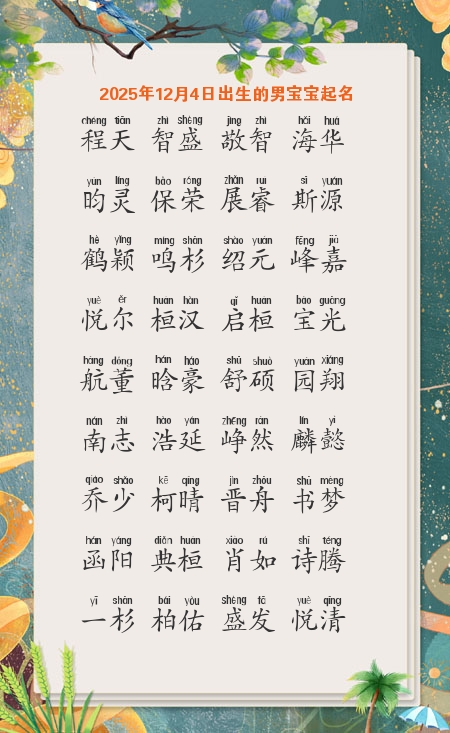 2025年12月4日出生的男宝宝起名
chéng tiān zhì shèng jìng zhì hǎi huá
程天 智盛 敬智 海华
yún líng bǎo róng zhǎn ruì sī yuán
昀灵 保荣 展睿 斯源
hè yǐng míng shān shào yuán fēng jiā
鹤颖 鸣杉 绍元 峰嘉
yuè ěr huán hàn qǐ huán bǎo guāng
悦尔 桓汉 启桓 宝光
háng dǒng hán háo shū shuò yuán xiáng
航董 晗豪 舒硕 园翔
nán zhì hào yán zhēng rán lín yì
南志 浩延 峥然 麟懿
qiáo shǎo kē qíng jìn zhōu shū mèng
乔少 柯晴 晋舟 书梦
hán yáng diǎn huán xiāo rú shī téng
函阳 典桓 肖如 诗腾
yī shān bǎi yòu shèng fā yuè qīng
一杉 柏佑 盛发 悦清